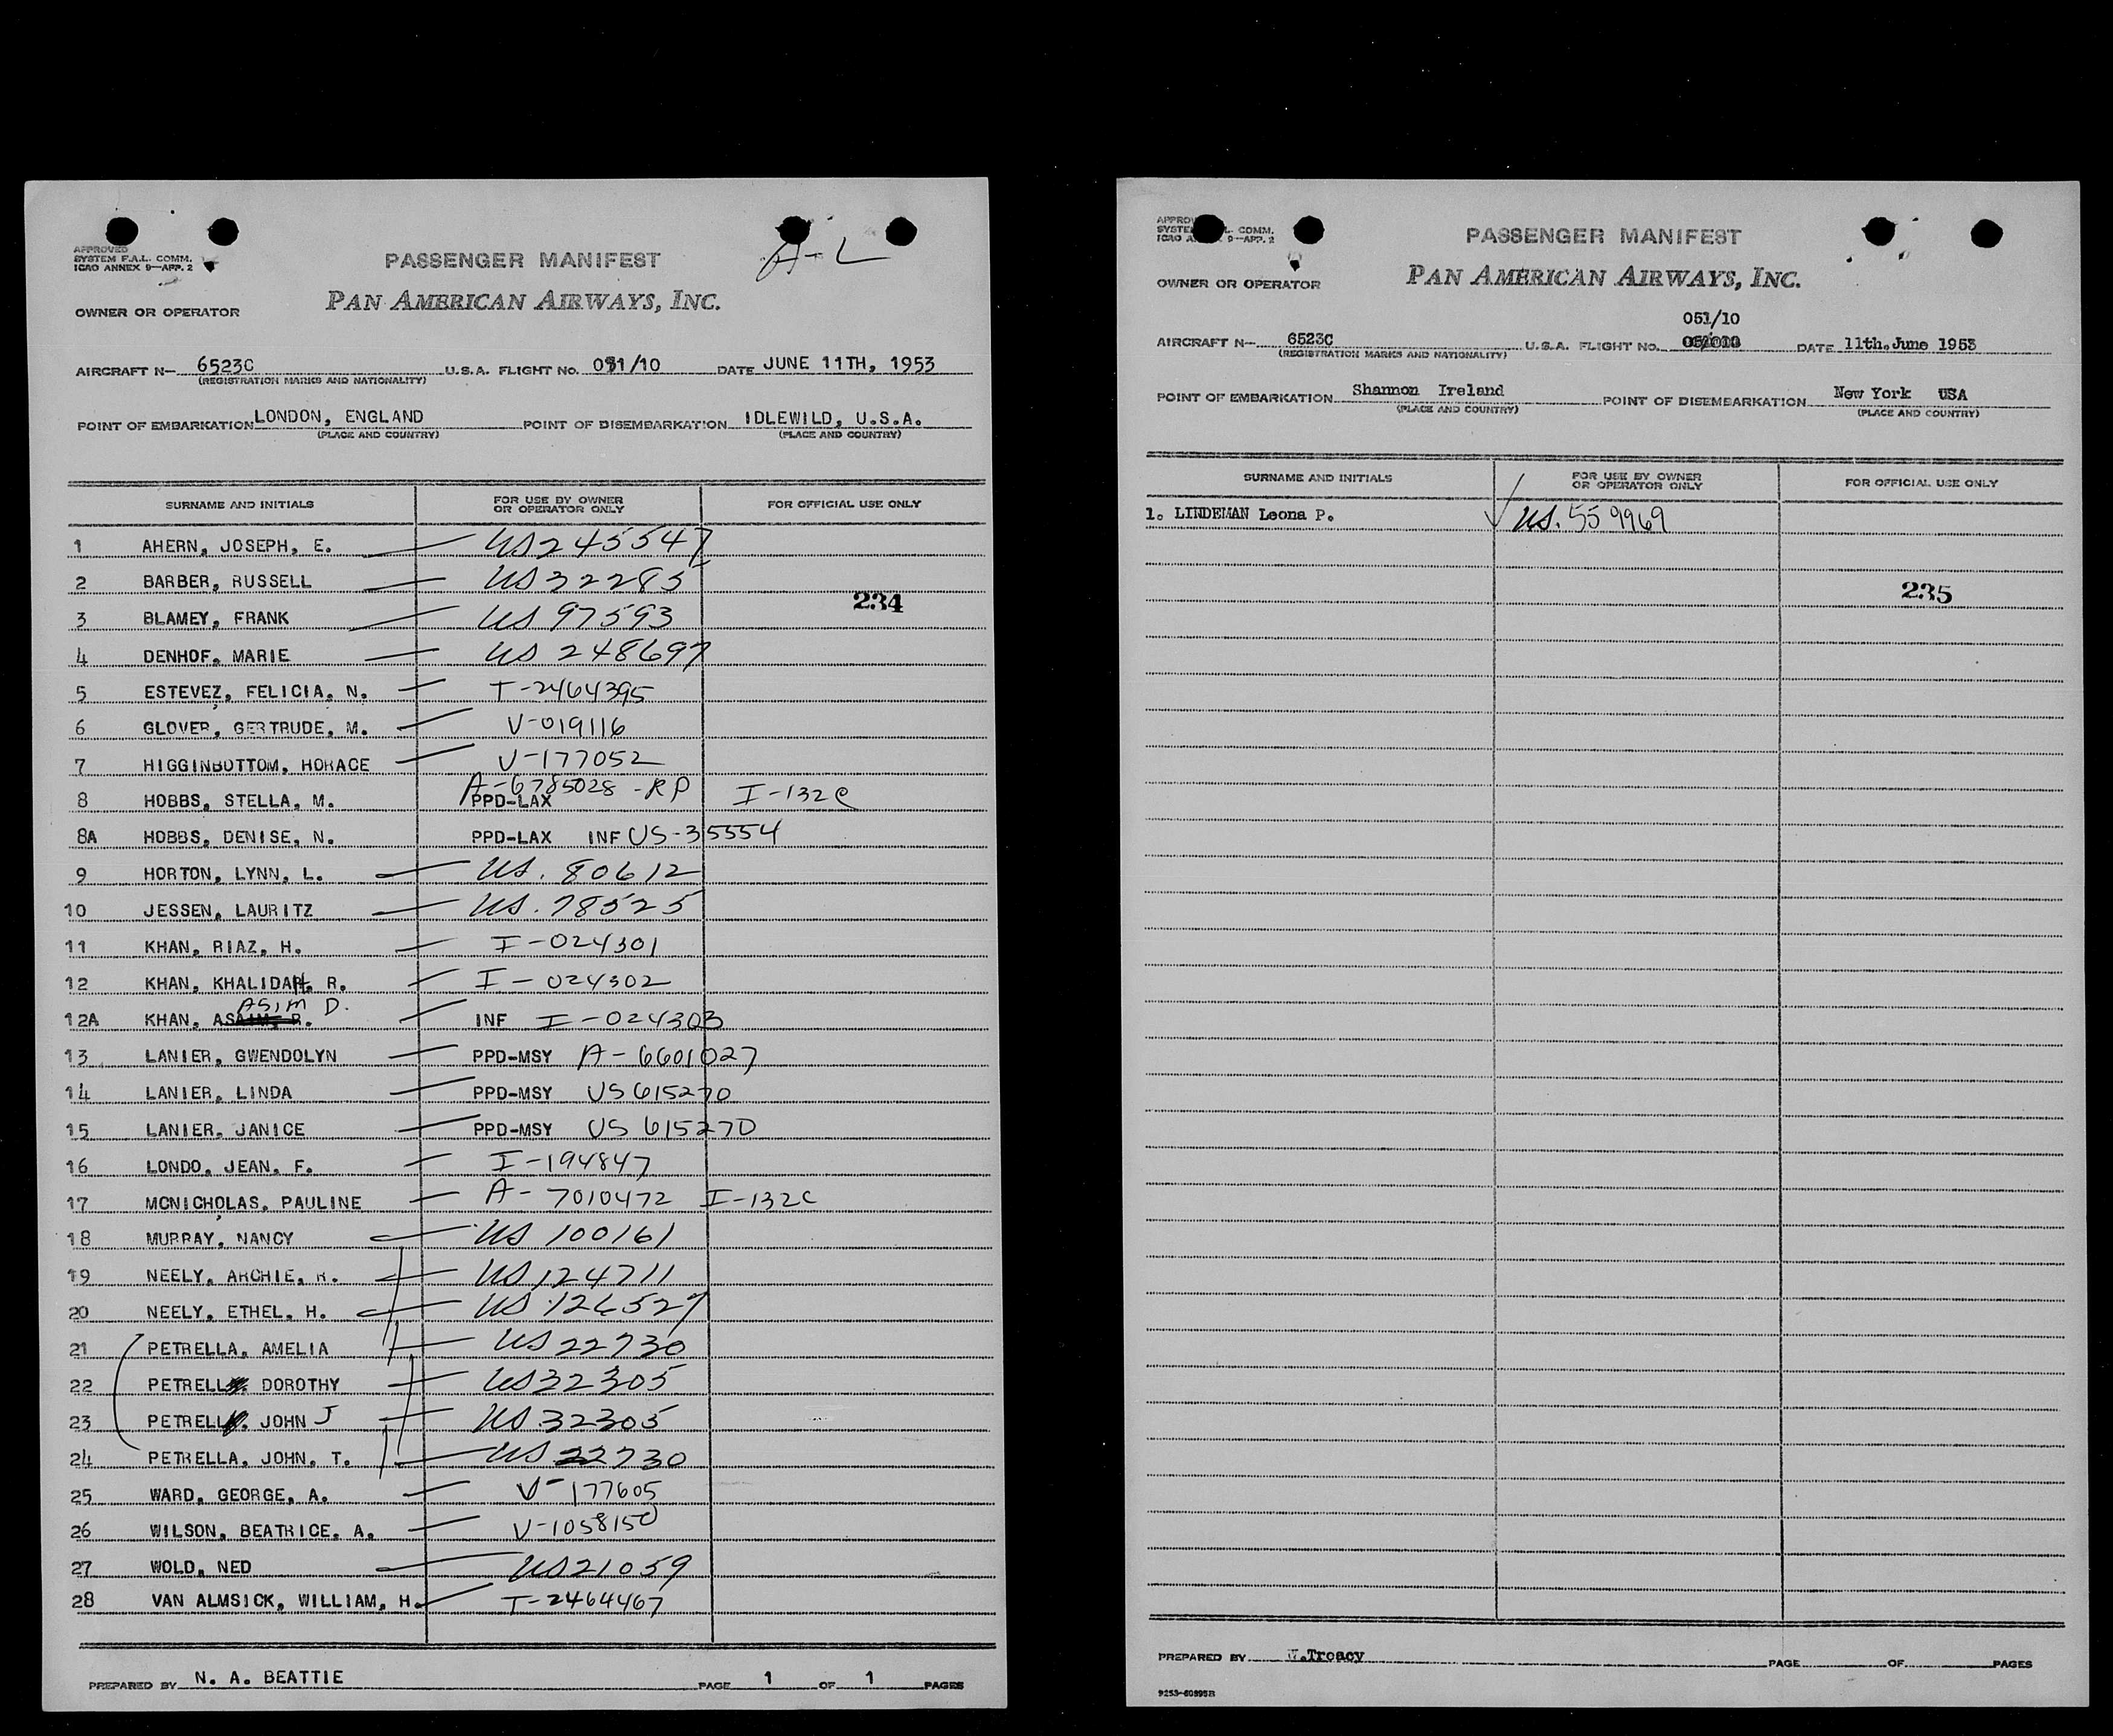 APPROVED
SYSTEM F.A.L. COMM.
ICAO ANNEX 9—APP. 2
PASSENGER MANIFEST
A-L
OWNER OR OPERATOR
PAN AMERICAN AIRWAYS, INC.
AIRCRAFT N— 6523C U.S.A. FLIGHT NO. 051/10 DATE JUNE 11TH, 1953
(REGISTRATION MARKS AND NATIONALITY)
POINT OF EMBARKATION LONDON, ENGLAND POINT OF DISEMBARKATION IDLEWILD, U.S.A.
(PLACE AND COUNTRY) (PLACE AND COUNTRY)
SURNAME AND INITIALS FOR USE BY OWNER OR OPERATOR ONLY FOR OFFICIAL USE ONLY
1 AHERN, JOSEPH, E. US245547
2 BARBER, RUSSELL US32285
234
3 BLAMEY, FRANK US 97593
4 DENHOF, MARIE US 248697
5 ESTEVEZ, FELICIA, N. T-2464395
6 GLOVER, GERTRUDE, M. V-019116
7 HIGGINBOTTOM, HORACE V-177052
8 HOBBS, STELLA, M. A-6785028-RP PPD-LAX I-132C
8A HOBBS, DENISE, N. PPD-LAX INF US-35554
9 HORTON, LYNN, L. US. 80612
10 JESSEN, LAURITZ US. 78525
11 KHAN, RIAZ, H. I-024301
12 KHAN, KHALIDAH, R. I-024302
ASIM D.
12A KHAN, INF I-024303
13 LANIER, GWENDOLYN PPD-MSY A-6601027
14 LANIER, LINDA PPD-MSY US 615270
15 LANIER, JANICE PPD-MSY US 615270
16 LONDO, JEAN, F. I-194847
17 MCNICHOLAS, PAULINE A-7010472 I-132C
18 MURRAY, NANCY US 100161
19 NEELY, ARCHIE, R. US 124711
20 NEELY, ETHEL, H. US 126527
21 PETRELLA, AMELIA US22730
22 PETRELL, DOROTHY US32305
23 PETRELL, JOHN J US 32305
24 PETRELLA, JOHN, T. US 22730
25 WARD, GEORGE, A. V-177605
26 WILSON, BEATRICE, A. V-1058150
27 WOLD, NED US21059
28 VAN ALMSICK, WILLIAM, H. T-2464467
PREPARED BY N. A. BEATTIE PAGE 1 OF 1 PAGES
SYSTEM F.A.L. COMM.
ICAO ANNEX 9—APP. 2
PASSENGER MANIFEST
OWNER OR OPERATOR
PAN AMERICAN AIRWAYS, INC.
051/10
AIRCRAFT N— 6523C U.S.A. FLIGHT NO. DATE 11th. June 1953
(REGISTRATION MARKS AND NATIONALITY)
POINT OF EMBARKATION Shannon Ireland POINT OF DISEMBARKATION New York USA
(PLACE AND COUNTRY) (PLACE AND COUNTRY)
SURNAME AND INITIALS FOR USE BY OWNER OR OPERATOR ONLY FOR OFFICIAL USE ONLY
1. LINDEMAN Leona P. US. 559969
235
PREPARED BY Treacy PAGE OF PAGES
9253-60895B